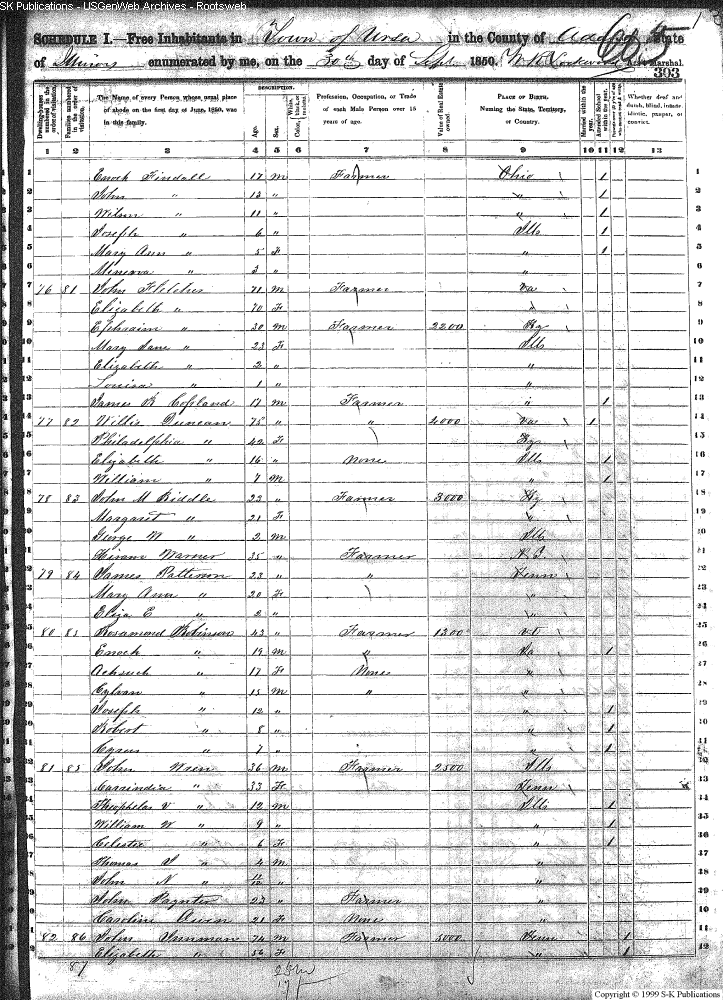 SK Publications - USGenWeb Archives - Rootsweb
SCHEDULE I.—Free Inhabitants in Town of Ursa in the County of Adams State
of Illinois enumerated by me, on the 30th day of Sept 1850. Ass't Marshal.
665
303
Dwelling-houses numbered in the order of visitation. Families numbered in the order of visitation. The Name of every Person whose usual place of abode on the first day of June, 1850, was in this family. DESCRIPTION. Age. Sex. White, Color, black or mulatto. Profession, Occupation, or Trade of each Male Person over 15 years of age. Value of Real Estate owned. PLACE OF BIRTH, Naming the State, Territory, or Country. Married within the year. Attended School within the year. Whether deaf and dumb, blind, insane, idiotic, pauper, or convict.
1 2 3 4 5 6 7 8 9 10 11 12 13
1 Enoch Tindall 17 M Farmer Ohio 1 1
2 John " 13 " " 1 2
3 Wilson " 11 " " 1 3
4 Joseph " 6 " Ills 1 4
5 Mary Ann " 5 F " 1 5
6 Minerva " 3 " " 6
7 76 81 John Fletcher 71 M Farmer Va 7
8 Elizabeth " 70 F " 8
9 Ephraim " 30 M Farmer 2200 Ky 9
10 Mary Jane " 23 F Ills 10
11 Elizabeth " 2 " " 11
12 Louisa " 1 " " 12
13 James R Copland 17 M Farmer " 1 13
14 77 82 Willis Duncan 75 " " 2000 Va 1 14
15 Philadelphia " 42 F Ky 15
16 Elizabeth " 16 " None Ills 1 16
17 William " 7 M " 1 17
18 78 83 John M Riddle 23 " Farmer 3000 Ky 18
19 Margaret " 21 F " 19
20 George W " 2 M Ills 20
21 Hiram Warner 35 " Farmer 21
22 79 84 James Patterson 23 " " Tenn 22
23 Mary Ann " 20 F " 23
24 Eliza E " 2 " " 24
25 80 85 Rosamond Robinson 43 " Farmer 1300 25
26 Enoch " 19 M " Va 1 26
27 Achsach " 17 F None "
28 Sylvan " 15 M " "
29 Joseph " 12 " " 1
30 Robert " 8 " " 1
31 Cyrus " 7 " " 1
32 81 85 John Wren 36 M Farmer 2500 Ills
33 Carsindia " 33 F Tenn
34 Theophelas V " 12 M Ills 1
35 William W " 9 " " 1
36 Celestia " 6 F " 1
37 Thomas J " 4 M "
38 John N " 11/12 " "
39 John Paynter 23 " Farmer "
40 Caroline Owen 21 F None "
41 82 86 John Inman 74 M Farmer 5000 Tenn 1
42 Elizabeth " 56 F " 1
87
25 m
17 f
Copyright © 1999 S-K Publications